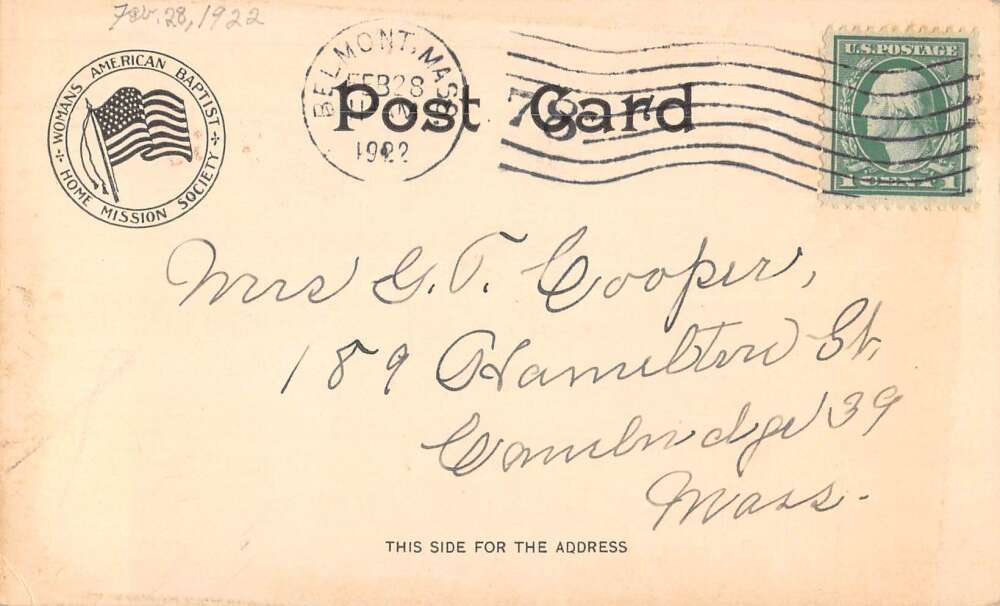 Feb. 28, 1922
WOMANS AMERICAN BAPTIST
HOME MISSION SOCIETY
BELMONT, MASS
FEB 28
1922
Post Card
U.S. POSTAGE
1 CENT 1
Mrs G. T. Cooper,
189 Hamilton St,
Cambridge 39
Mass.
THIS SIDE FOR THE ADDRESS